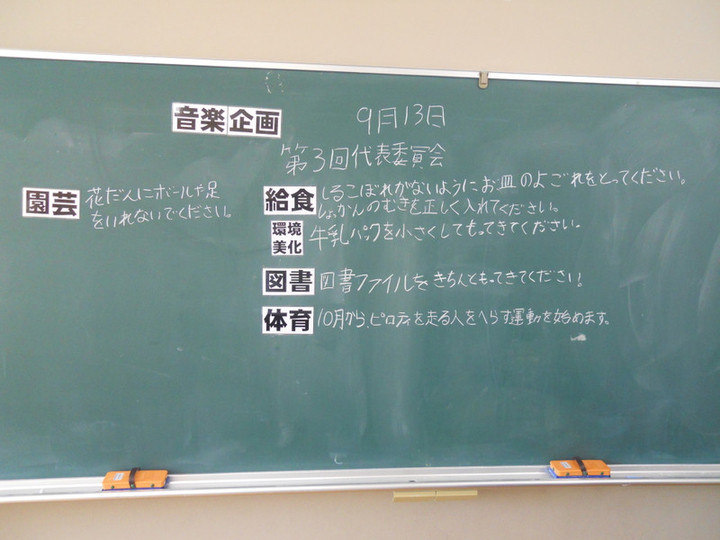 音楽 企画
9月13日
第3回代表委員会
園芸 花だんにボールや足
をいれないでください。
給食 しるこぼれがないようにお皿のよごれをとってください。
しょっかんのむきを正しく入れてください。
環境美化 牛乳パックを小さくしてもってきてください。
図書 図書ファイルをきちんともってきてください。
体育 10月から、ピロティを走る人をへらす運動を始めます。